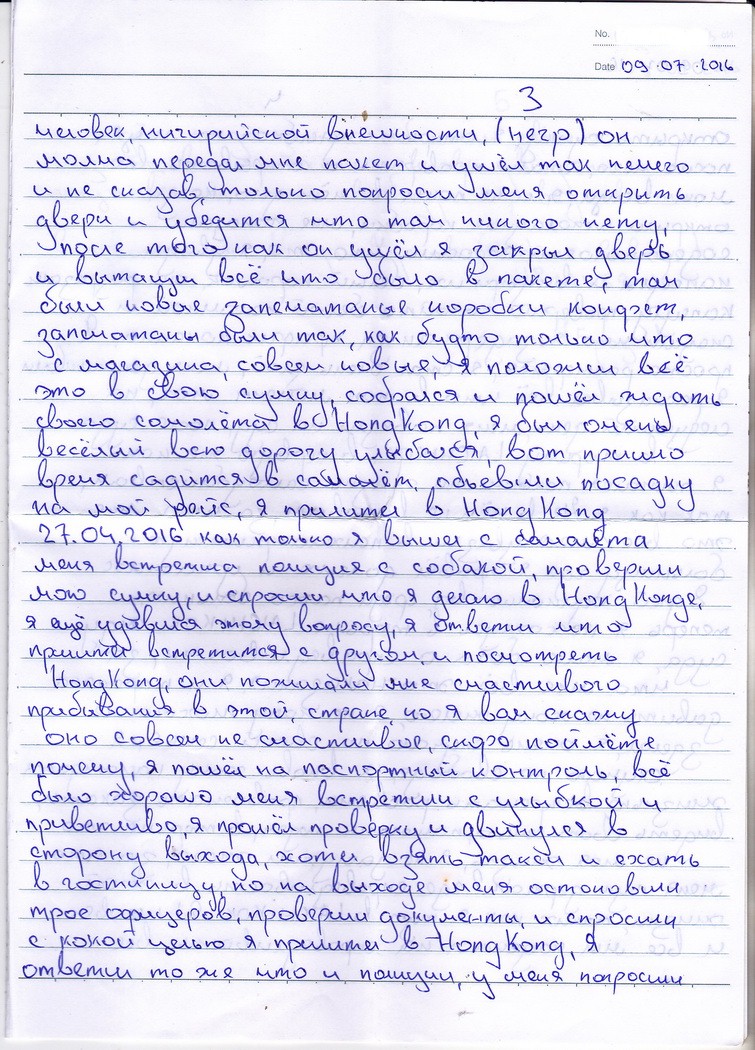 No.
Date 09.07.2016
3
человек, нигирийской внешности, (негр) он
молча передал мне пакет и ушёл так нечего
и не сказав, только попросил меня открыть
двери и убедится что там никого нету,
после того как он ушёл я закрыл дверь
и вытащил всё что было в пакете, там
были новые запечатаные коробки конфет,
запечатаны были так, как будто только что
с магазина, совсем новые, я положил всё
это в свою сумку, собрался и пошёл ждать
своего самолёта в HongKong, я был очень
весёлый всю дорогу улыбался, вот пришло
время садится в самолёт, обьевили посадку
на мой рейс, я прилител в HongKong
27.04.2016 как только я вышел с самолёта
меня встретила полиция с собакой, проверили
мою сумку, и спросили что я делаю в HongKongе,
я ещё удивился этому вопросу, я ответил что
прилител встретится с другом и посмотреть
HongKong, они пожилали мне счастливого
прибывания в этой, стране, но я вам скажу
оно совсем не счастливое, скоро поймёте
почему, я пошёл на паспортный контроль, всё
было хорошо меня встретили с улыбкой и
приветливо, я прошёл проверку и двинулся в
сторону выхода, хотел взять такси и ехать
в гостиницу, но на выходе меня остоновили
трое офицеров, проверили документы, и спросили
с какой целью я прилител в HongKong, я
ответил то же что и полиции, у меня попросили